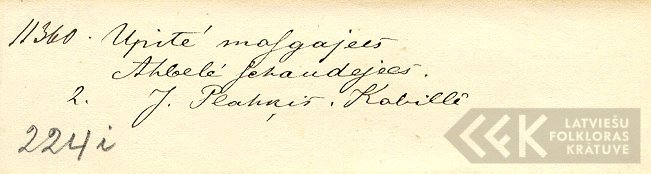 11360. Upitê masgajees
Ahbelê schaudejees.
2. J. Plahķis. Kabillê
224i
LATVIEŠU
FOLKLORAS
KRĀTUVE